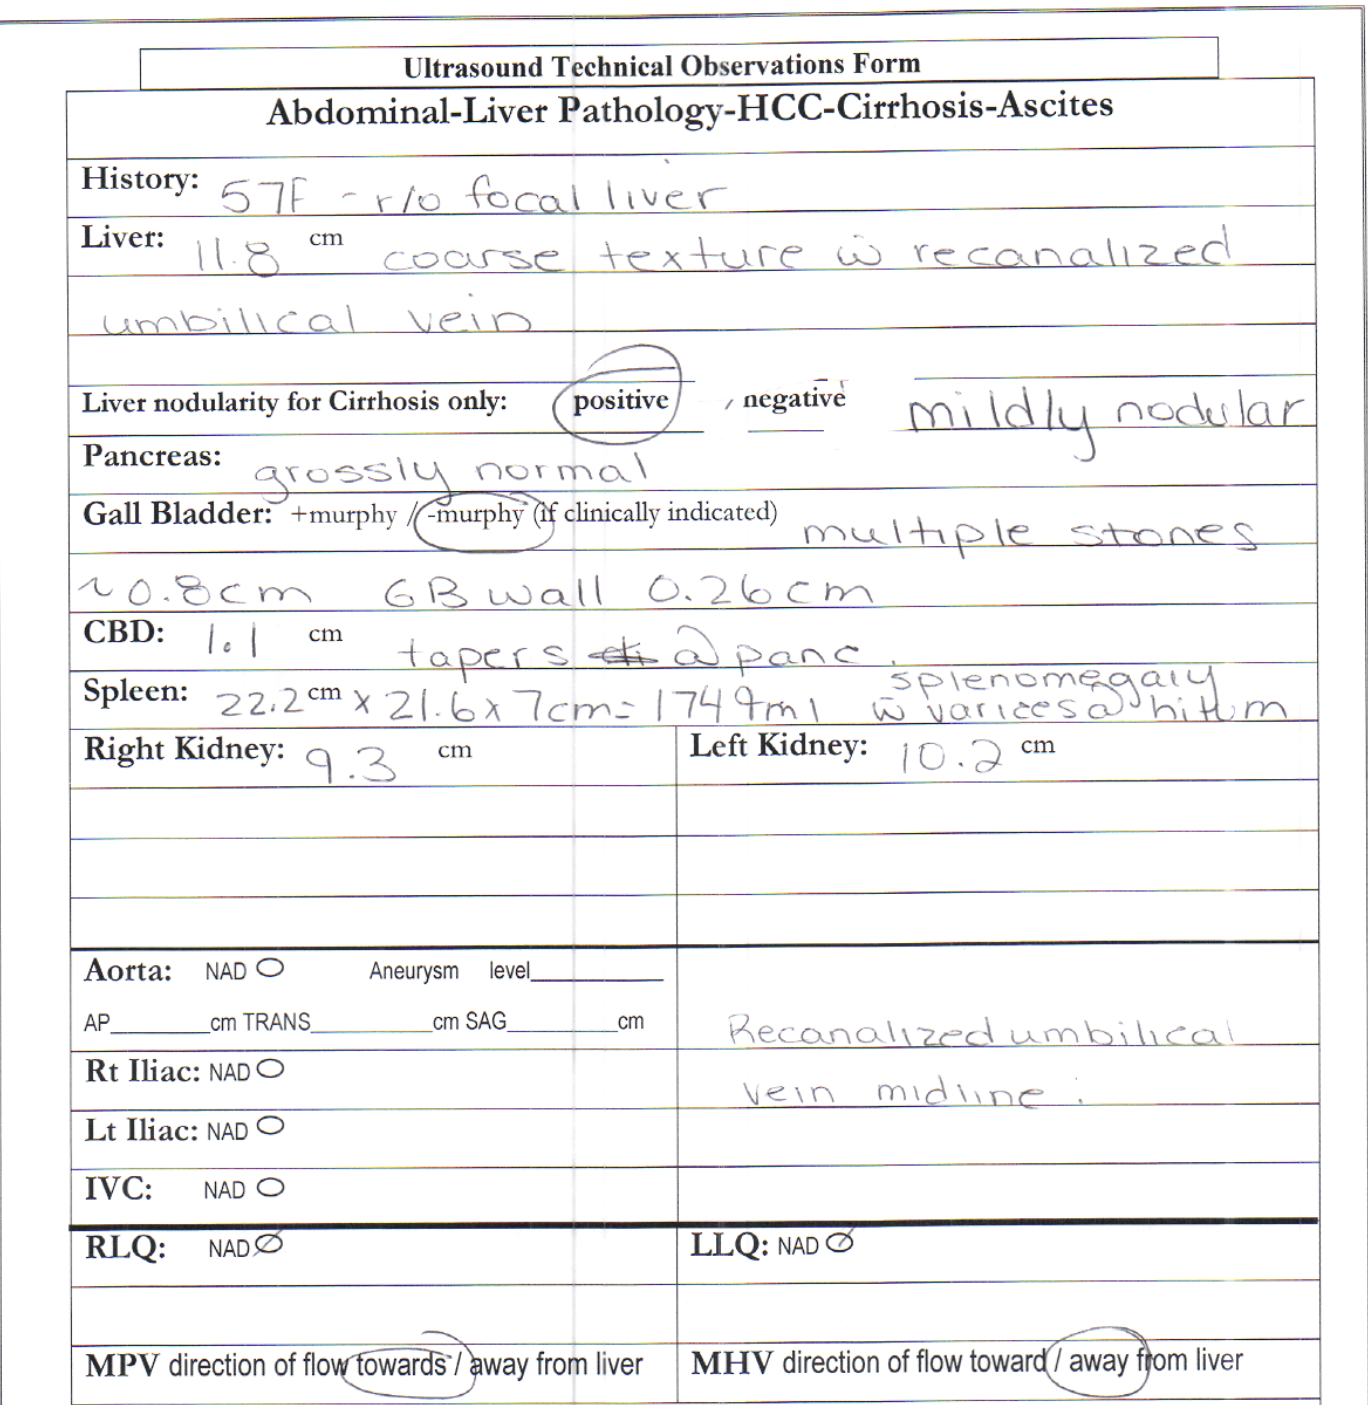 Ultrasound Technical Observations Form
Abdominal-Liver Pathology-HCC-Cirrhosis-Ascites
History: 57F - r/o focal liver
Liver: 11.8 cm coarse texture w̄ recanalized
umbilical vein
Liver nodularity for Cirrhosis only: positive / negative mildly nodular
Pancreas: grossly normal
Gall Bladder: +murphy / -murphy (if clinically indicated) multiple stones
~0.8cm GB wall 0.26cm
CBD: 1.1 cm tapers @ panc.
Spleen: 22.2 cm x 21.6 x 7cm = 1749ml splenomegaly
w̄ varices @ hilum
Right Kidney: 9.3 cm
Left Kidney: 10.2 cm
Aorta: NAD O Aneurysm level
AP cm TRANS cm SAG cm
Recanalized umbilical
Rt Iliac: NAD O
vein midline.
Lt Iliac: NAD O
IVC: NAD O
RLQ: NAD
LLQ: NAD
MPV direction of flow towards / away from liver
MHV direction of flow toward / away from liver